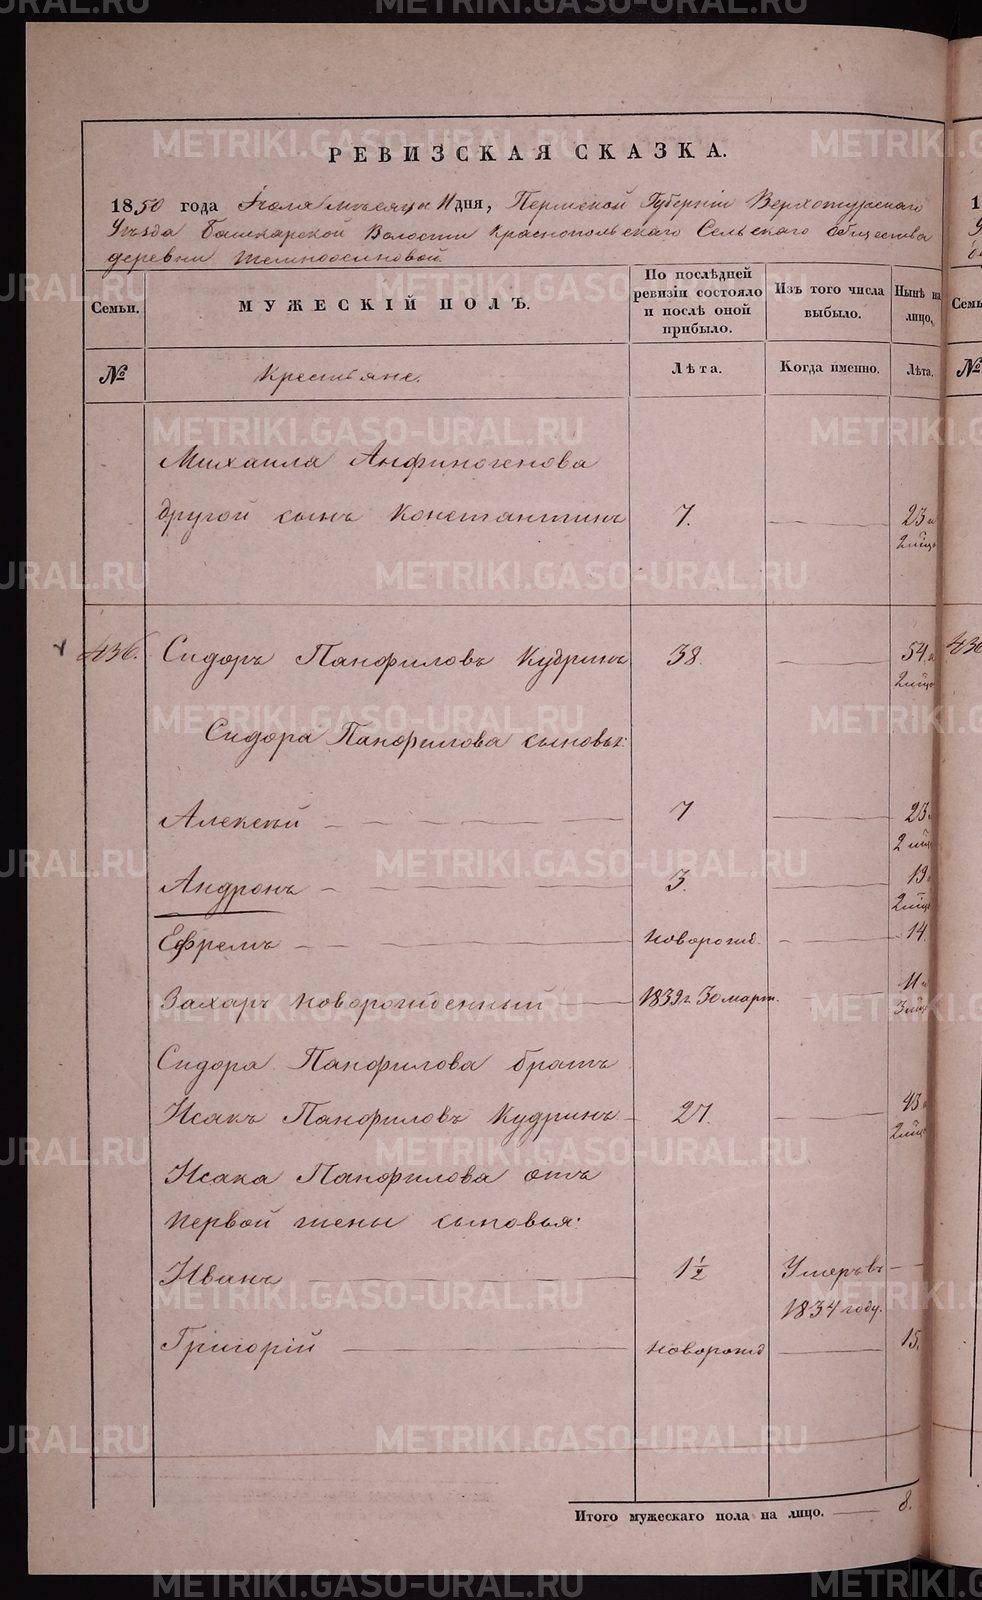 РЕВИЗСКАЯ СКАЗКА.
1850 года Іюля мѣсяца 11 дня, Пермской Губерніи Верхотурскаго
Уѣзда Башкарской Волости Краснопольскаго Сельскаго общества
деревни Темноосиновой.
Семьи.
МУЖЕСКІЙ ПОЛЪ.
По послѣдней ревизіи состояло и послѣ оной прибыло.
Изъ того числа выбыло.
Нынѣ на лицо,
№
Крестьяне.
Лѣта.
Когда именно.
Лѣта.
Михаила Анфиногенова
другой сынъ Константинъ 7. 23 и
2 мѣц
436. Сидоръ Панфиловъ Кудринъ 38. 54. и
2 мѣц
Сидора Панфилова сыновья:
Алексѣй 7 23
2 мѣц
Андронъ 3. 19.
2 мѣц
Ефремъ новорожд. 14.
Захаръ новорожденный 1839 г. 30 март. 11 и
3 мѣц
Сидора Панфилова братъ
Исакъ Панфиловъ Кудринъ 27. 43 и
2 мѣц
Исака Панфилова отъ
первой жены сыновья:
Иванъ 1 1/2 Умеръ въ
1834 году.
Григорій новорожд 15.
Итого мужескаго пола на лицо. 8.
METRIKI.GASO-URAL.RU